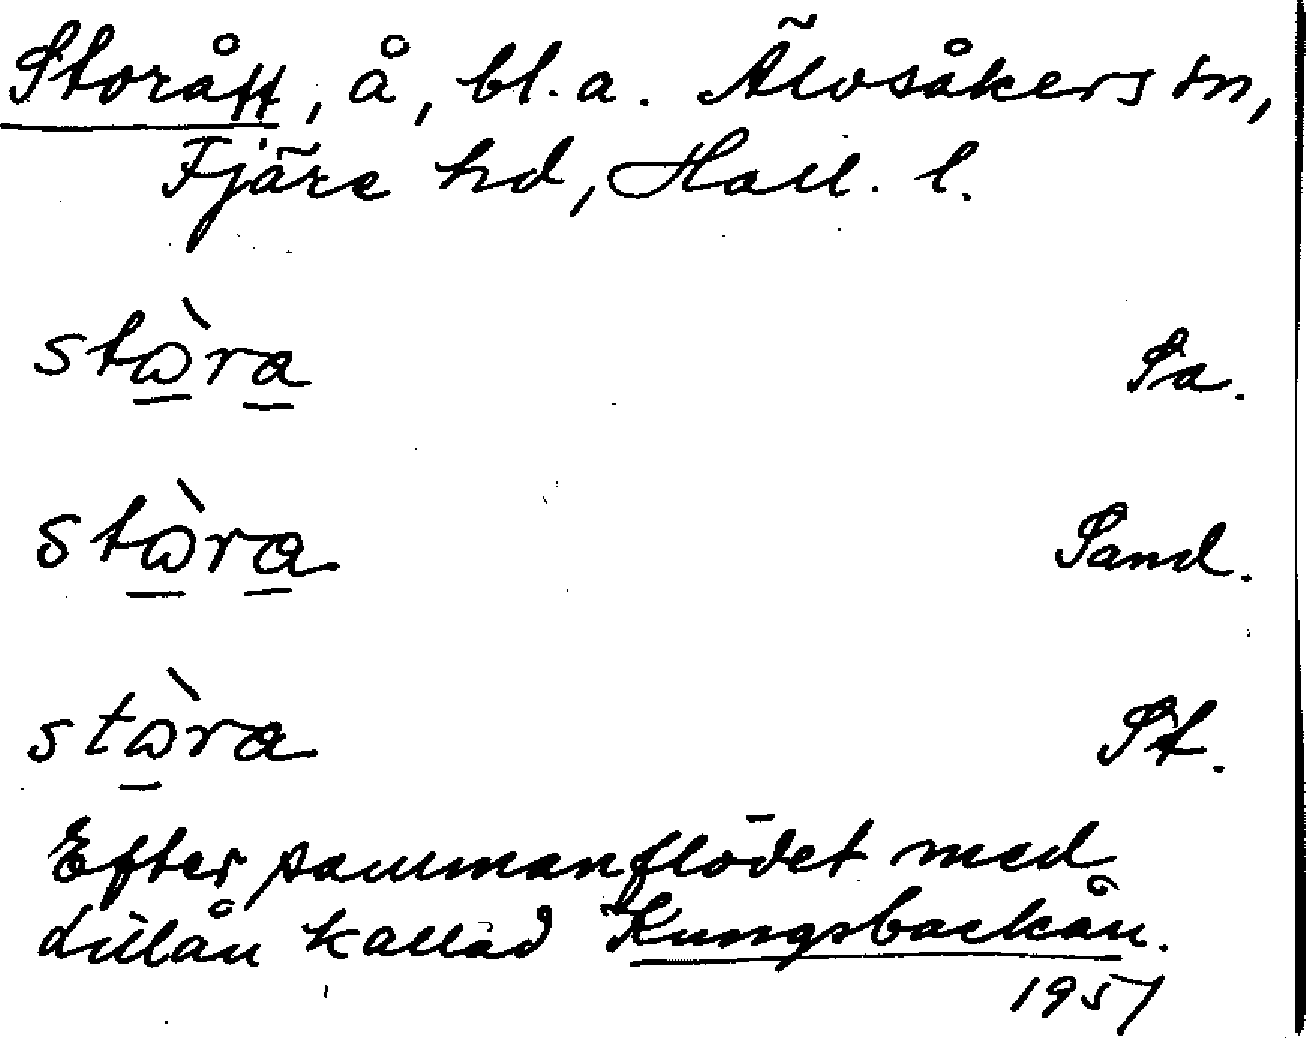 Storån, å, bl.a. Älvsåkers sn,
Fjäre hd, Hall. l.
stὼra Sa.
stὼra Sand.
stὼra St.
Efter sammanflödet med
Lillån kallad Kungsbackaån.
1957